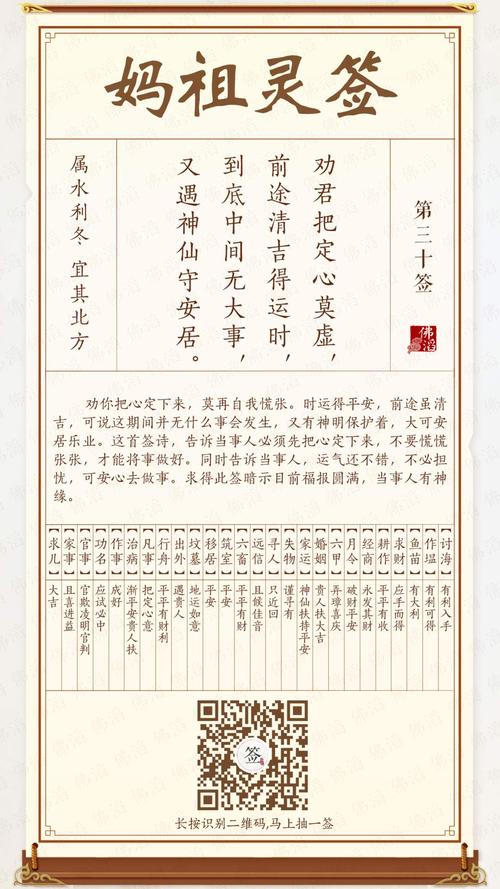 妈祖灵签
第三十签
佛滔
劝君把定心莫虚，
前途清吉得运时，
到底中间无大事，
又遇神仙守安居。
属水利冬 宜其北方
劝你把心定下来，莫再自我慌张。时运得平安，前途虽清
吉，可说这期间并无什么事会发生，又有神明保护着，大可安
居乐业。这首签诗，告诉当事人必须先把心定下来，不要慌慌
张张，才能将事做好。同时告诉当事人，运气还不错，不必担
忧，可安心去做事。求得此签暗示目前福报圆满，当事人有神
缘。
【讨海】有利入手
【作塭】有利可得
【鱼苗】有大利
【求财】应手而得
【耕作】平平有收
【经商】永发其财
【月令】破财平安
【六甲】弄璋喜庆
【婚姻】贵人扶大吉
【家运】神仙扶持平安
【失物】谨寻有
【寻人】只近回
【远信】且候佳音
【六畜】平平有财
【筑室】平安
【移居】平安
【坟墓】地运如意
【出外】遇贵人
【行舟】平平有财利
【凡事】把定心意
【治病】渐平安贵人扶
【作事】成好
【功名】应试必中
【官事】官欺凌明官判
【家事】且喜进益
【求儿】大吉
签
长按识别二维码,马上抽一签